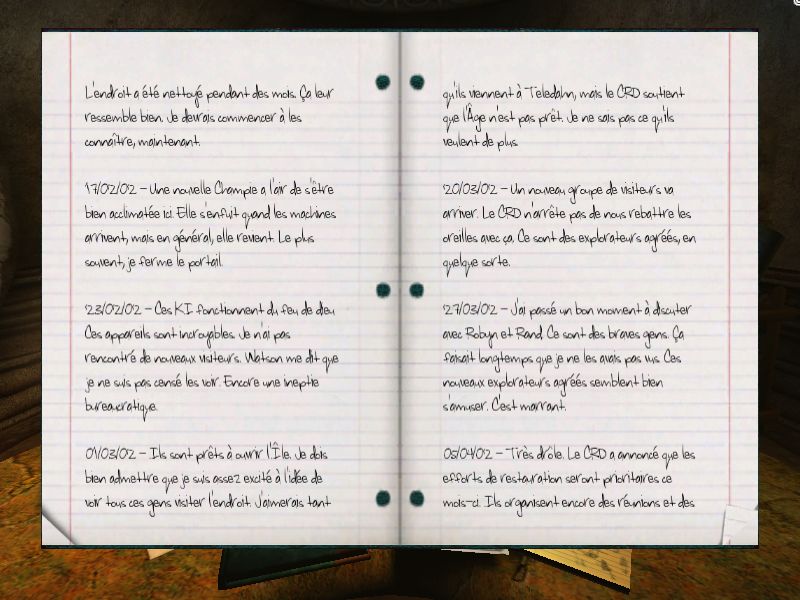 L'endroit a été nettoyé pendant des mois. Ça leur
ressemble bien. Je devrais commencer à les
connaître, maintenant.
17/02/02 – Une nouvelle Champie a l'air de s'être
bien acclimatée ici. Elle s'enfuit quand les machines
arrivent, mais en général, elle revient. Le plus
souvent, je ferme le portail.
23/02/02 – Ces KI fonctionnent du feu de dieu
Ces appareils sont incroyables. Je n'ai pas
rencontré de nouveaux visiteurs. Watson me dit que
je ne suis pas censé les voir. Encore une ineptie
bureaucratique.
01/03/02 – Ils sont prêts à ouvrir l'Île. Je dois
bien admettre que je suis assez excité à l'idée de
voir tous ces gens visiter l'endroit. J'aimerais tant
qu'ils viennent à Teledahn, mais le CRD soutient
que l'Âge n'est pas prêt. Je ne sais pas ce qu'ils
veulent de plus.
20/03/02 – Un nouveau groupe de visiteurs va
arriver. Le CRD n'arrête pas de nous rebattre les
oreilles avec ça. Ce sont des explorateurs agréés, en
quelque sorte.
27/03/02 – J'ai passé un bon moment à discuter
avec Robyn et Rand. Ce sont des braves gens. Ça
faisait longtemps que je ne les avais pas vus Ces
nouveaux explorateurs agréés semblent bien
s'amuser. C'est marrant.
05/04/02 – Très drôle. Le CRD a annoncé que les
efforts de restauration seront prioritaires ce
mois-ci. Ils organisent encore des réunions et des